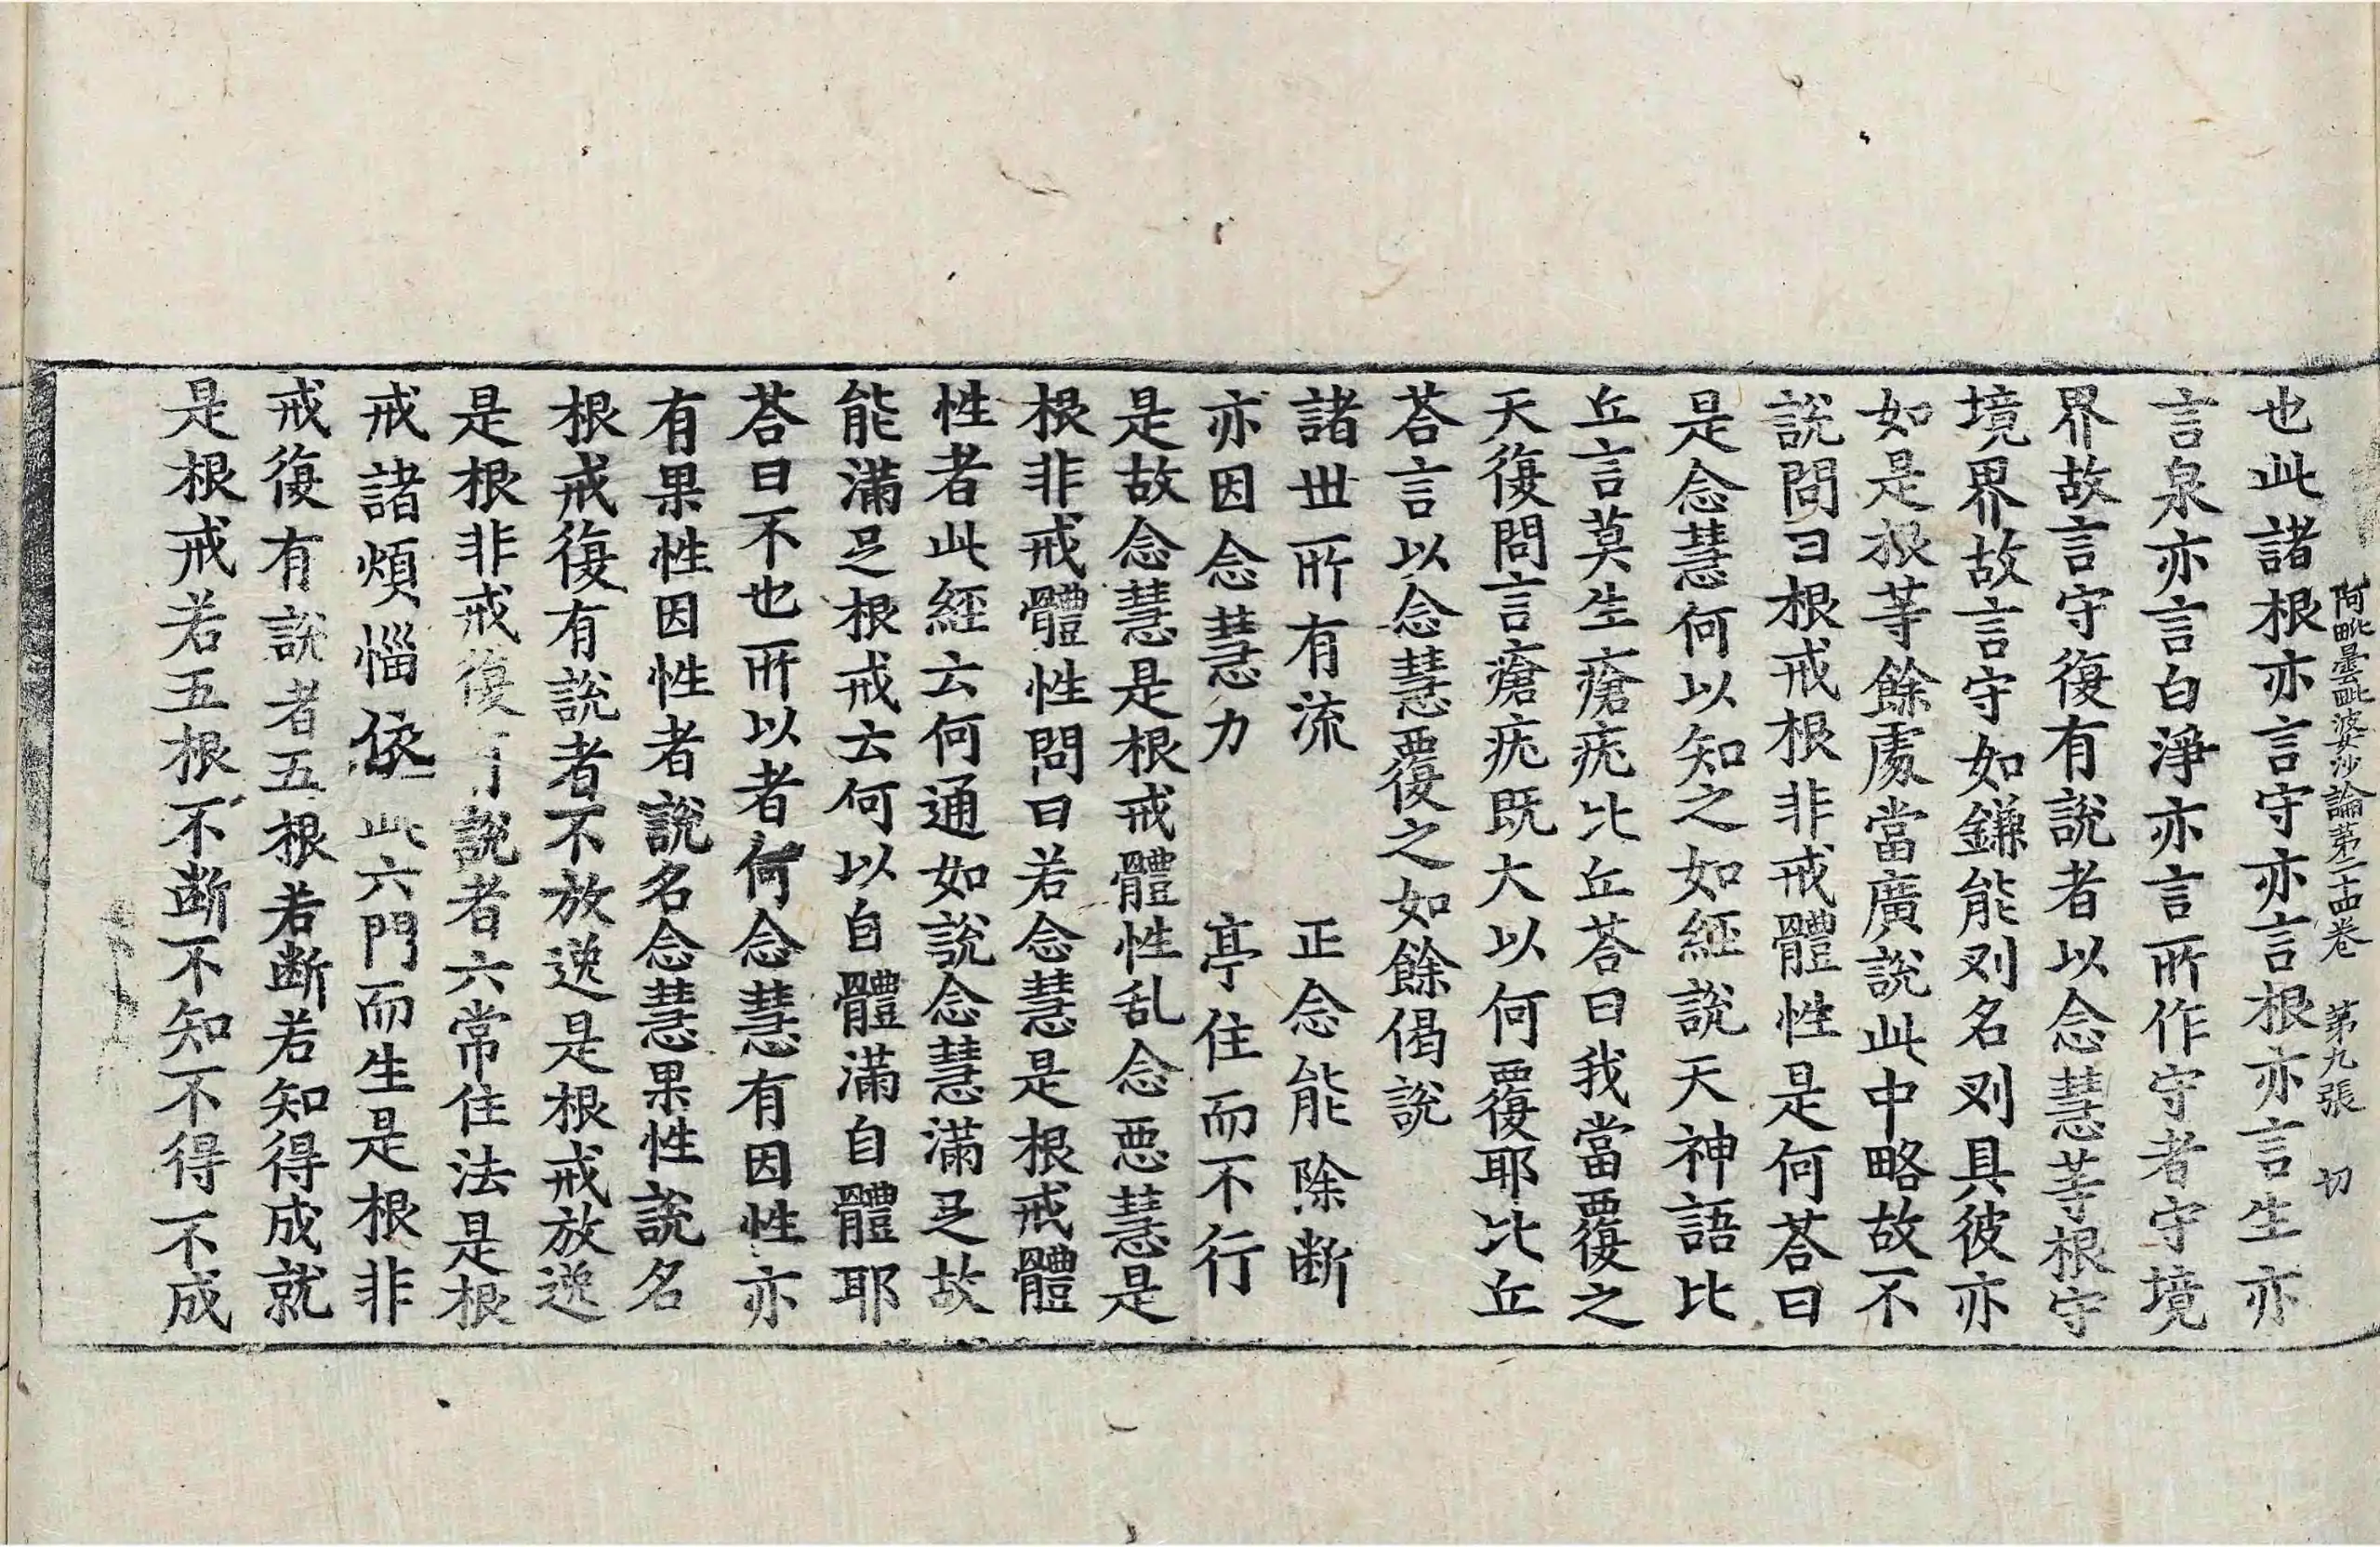 阿毗曇毗婆沙論第二十四卷 第九張 切
也此諸根亦言守亦言根亦言生亦
言泉亦言白淨亦言所作守者守境
界故言守復有說者以念慧等根守
境界故言守如鎌能刈名刈具彼亦
如是根等餘處當廣說此中略故不
說問曰根戒根非戒體性是何荅曰
是念慧何以知之如經說天神語比
丘言莫生瘡疣比丘荅曰我當覆之
天復問言瘡疣既大以何覆耶比丘
荅言以念慧覆之如餘偈說
諸世所有流 正念能除断
亦因念慧力 亭住而不行
是故念慧是根戒體性乱念惡慧是
根非戒體性問曰若念慧是根戒體
性者此經云何通如說念慧滿足故
能滿足根戒云何以自體滿自體耶
荅曰不也所以者何念慧有因性亦
有果性因性者說名念慧果性說名
根戒復有說者不放逸是根戒放逸
是根非戒復說者六常住法是根
戒諸煩惱依此六門而生是根非
戒復有說者五根若断若知得成就
是根戒若五根不断不知不得不成